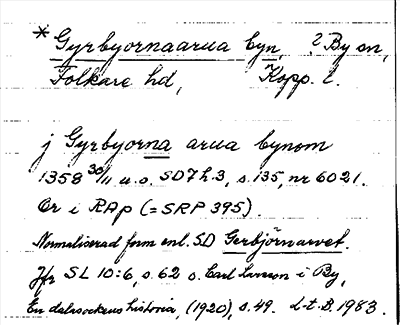 * Gyrbyornaarua byn, ? By sn,
Folkare hd, Kopp. l.
j Gyrbyorna arua bynom
1358 30/11 u.o. SD 7 h. 3, s. 135, nr 6021.
Or i RAp (= SRP 395).
Normaliserad form enl. SD Gerbjörnarvet.
Jfr SL 10:6, s. 62 o. Carl Larsson i By,
En dalasockens historia, (1920), s. 49. L-t. B. 1983.